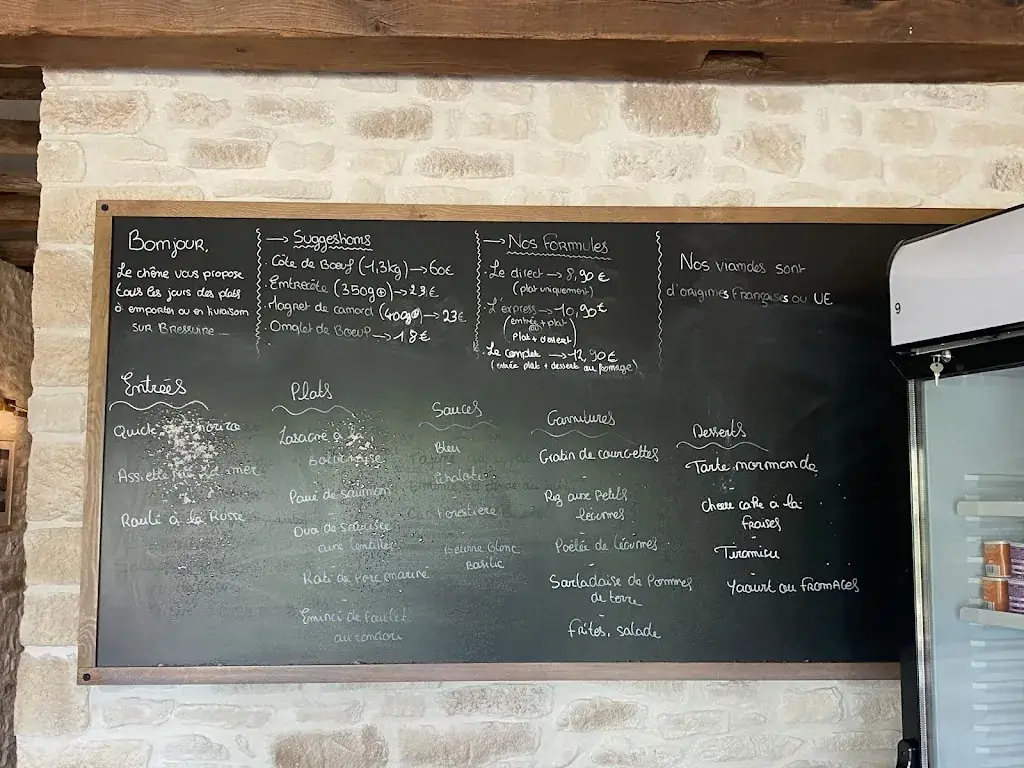 Bonjour,
Le chêne vous propose
tous les jours des plats
à emporter ou en livraison
SUR Bressuire
→ Suggestions
. Côte de Bœuf (1,3kg) → 60€
. Entrecôte (350g) → 23€
. Magret de canard (400g) → 23€
. Onglet de Bœuf → 18€
→ Nos Formules
. Le direct → 8,90€
(plat uniquement)
. L'express → 10,90€
(entrée + plat
ou
plat + dessert)
. Le complet → 12,90€
(entrée plat + dessert ou fromage)
Nos viandes sont
d'origines Françaises ou UE
Entrées
Quick chorizo
Assiette mer
Roulé à la Russe
Plats
Lasagne à la
Bolognaise
Pavé de saumon
Duo de saucisse
aux lentilles
Roti de Porc mariné
Emincé de Poulet
Sauces
Bleu
Echalote
Forestière
Beurre Blanc
Basilic
Garnitures
Gratin de courgettes
Riz aux Petits
légumes
Poêlée de légumes
Sarladaise de Pommes
de terre
Frites, salade
Desserts
Tarte normande
Cheese cake à la
fraises
Tiramisu
Yaourt ou FROMAGES
9